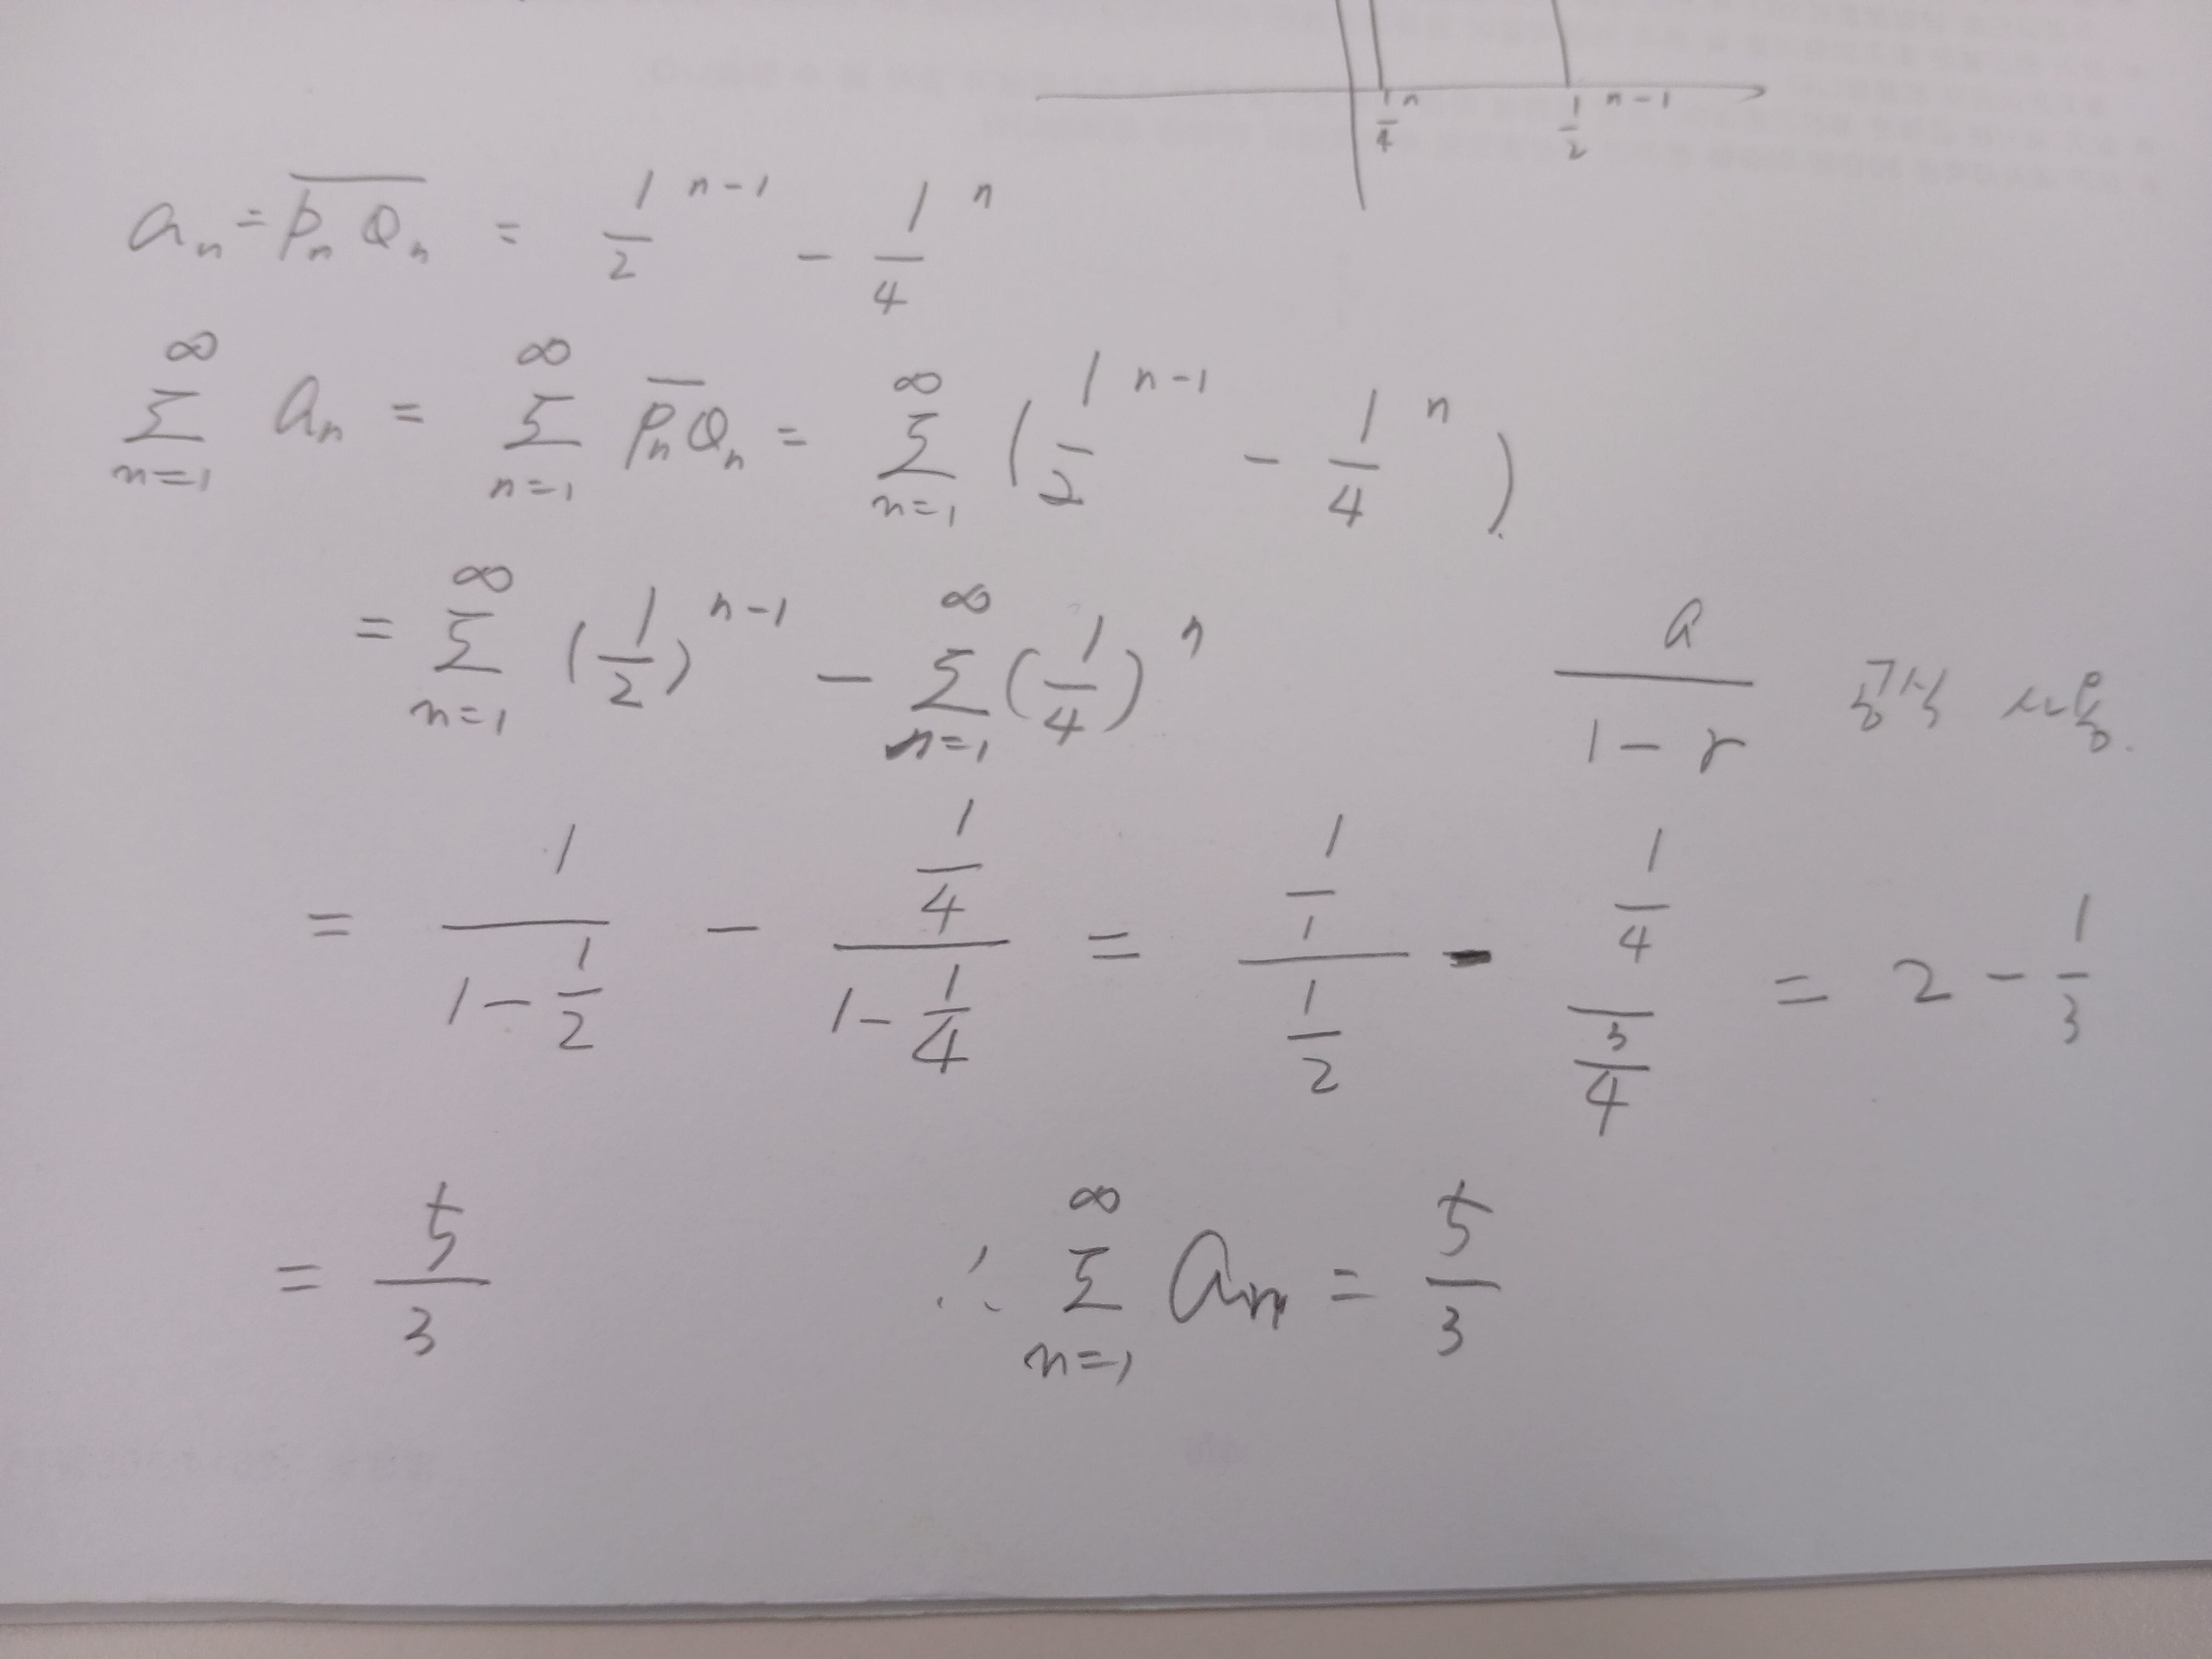 1/4 n 1/2 n-1
aₙ = PₙQₙ = 1/2 n-1 - 1/4 n
∞ Σ n=1 aₙ = ∞ Σ n=1 PₙQₙ = ∞ Σ n=1 (1/2 n-1 - 1/4 n)
= ∞ Σ n=1 (1/2) n-1 - ∞ Σ n=1 (1/4) n a/1-r 공식 사용.
= 1/(1-1/2) - (1/4)/(1-1/4) = (1/1)/(1/2) - (1/4)/(3/4) = 2 - 1/3
= 5/3 ∴ ∞ Σ n=1 aₙ = 5/3